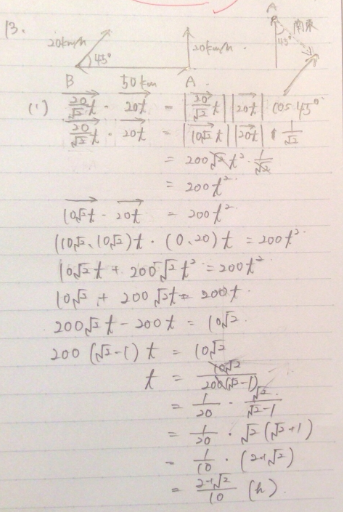 13.
20km/h 45° 20km/h A 45° 南東
B 50km A
(1) 20/√2 t · 20t = |20/√2 t| |20t| cos 45°
20/√2 t · 20t = |10√2 t| |20t| · 1/√2
= 200√2 t² · 1/√2
= 200t²
10√2t · 20t = 200t²
(10√2, 10√2)t · (0, 20)t = 200t²
10√2t + 200√2t² = 200t²
10√2 + 200√2t = 200t
200√2t - 200t = 10√2
200(√2-1)t = 10√2
t = 10√2/200(√2-1)
= 1/20 · √2/√2-1
= 1/20 · √2(√2+1)
= 1/10 · (2+√2)
= 2+√2/10 (h)